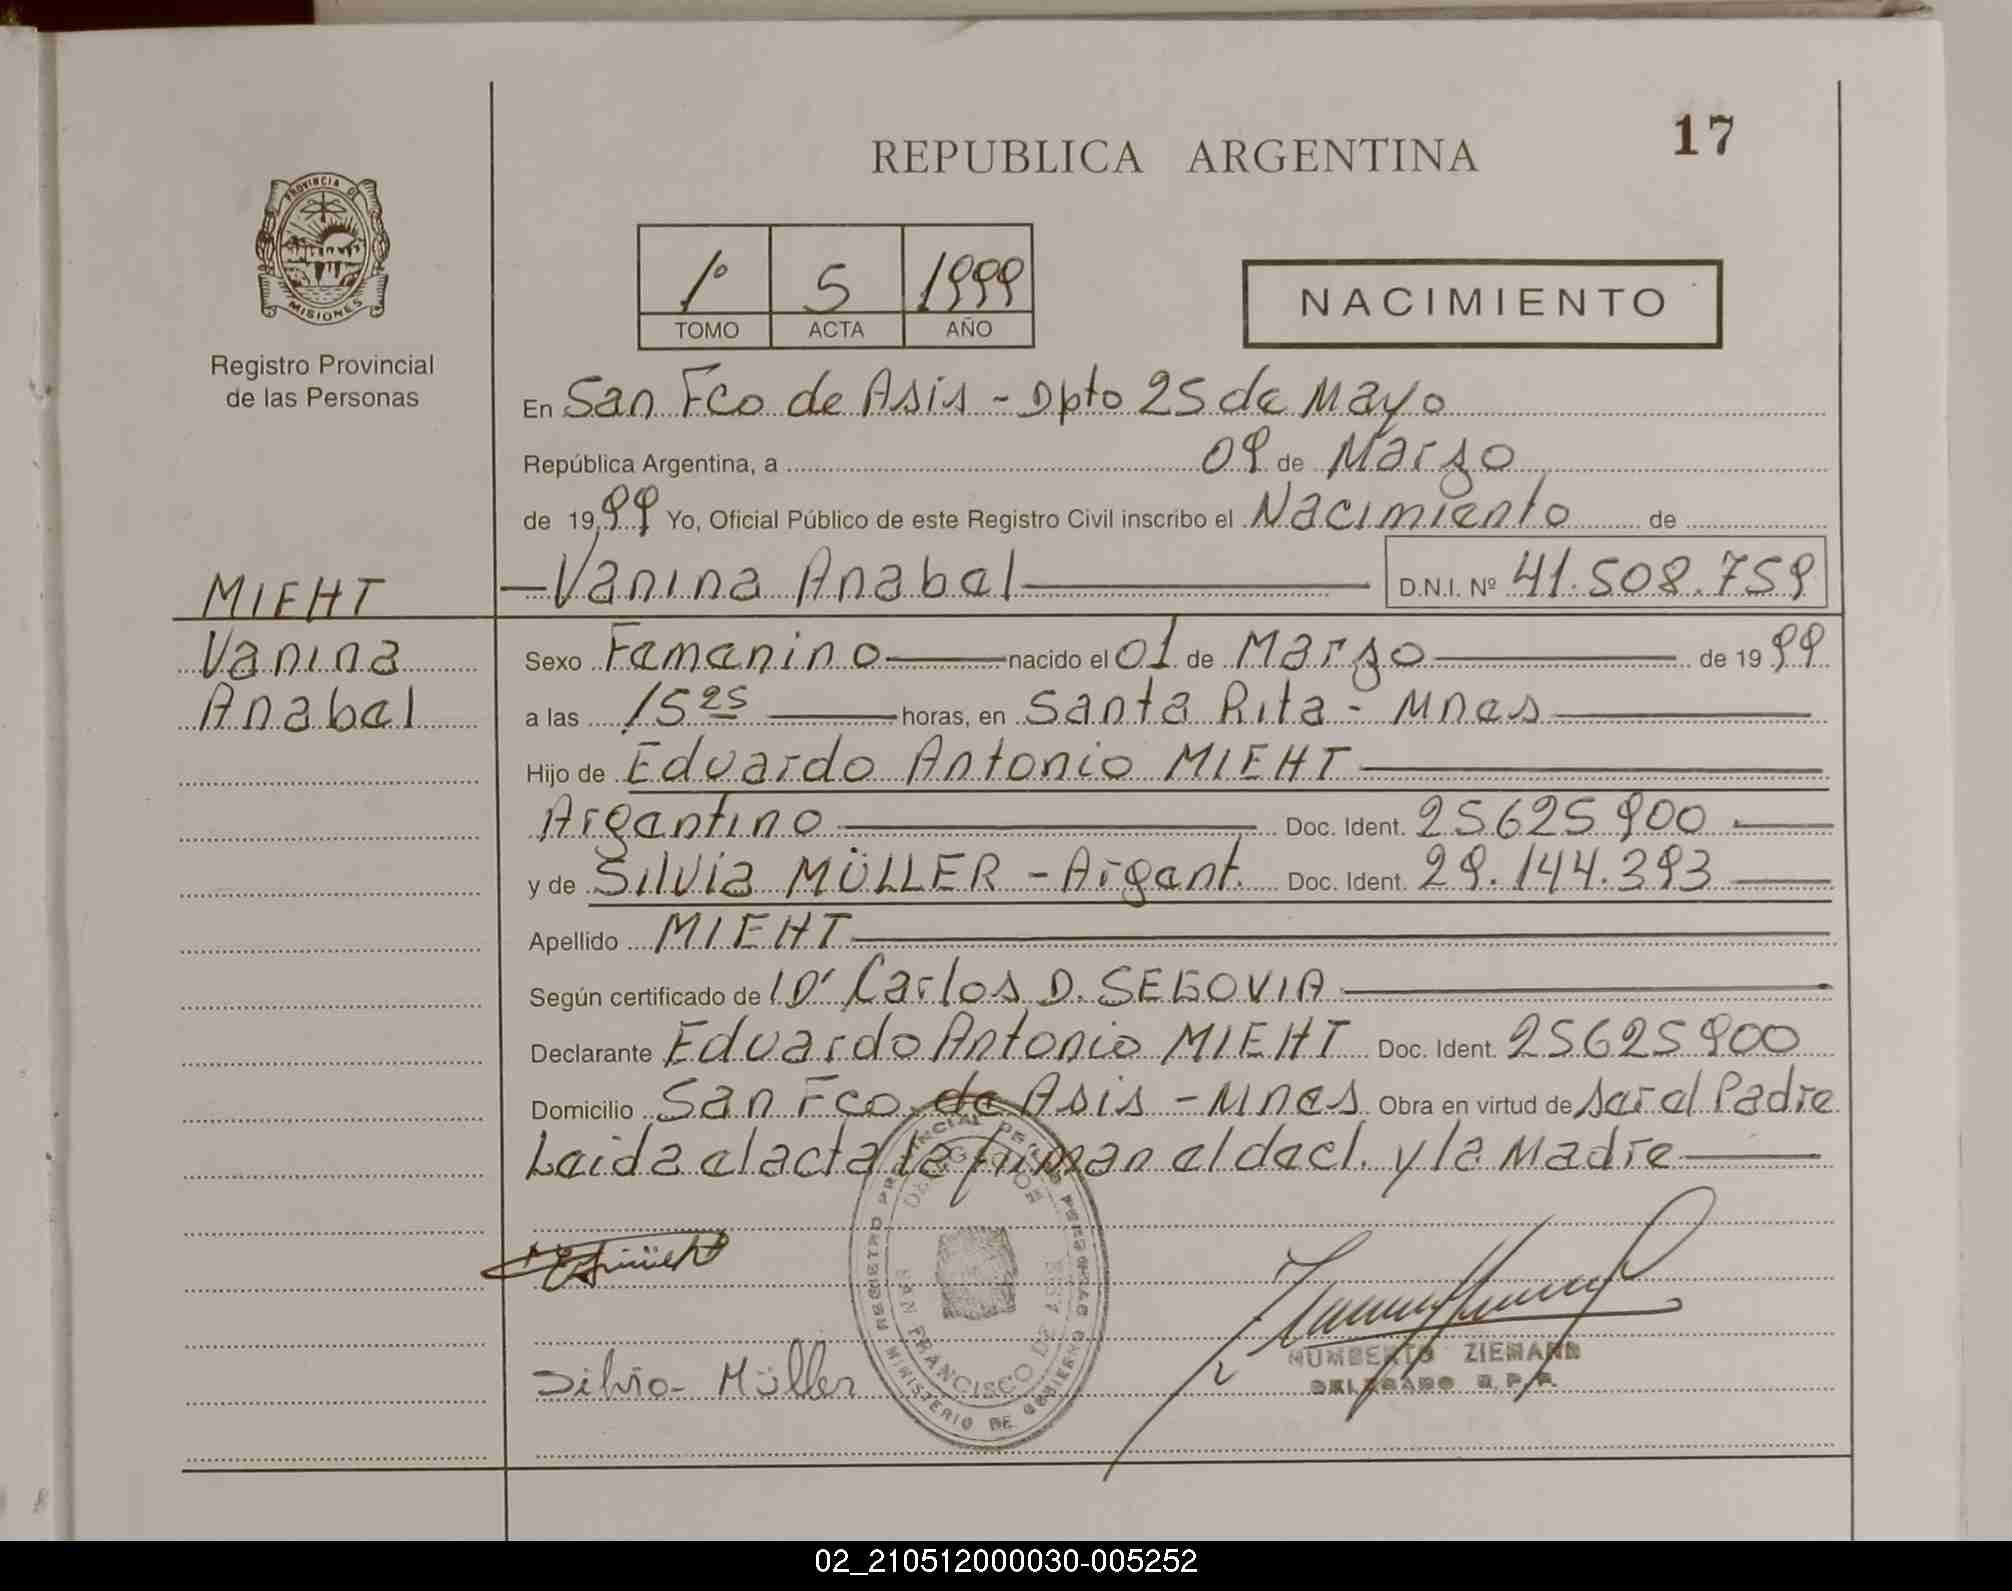 17
REPUBLICA ARGENTINA
PROVINCIA DE
MISIONES
Registro Provincial
de las Personas
1º 5 1999
TOMO ACTA AÑO
NACIMIENTO
En San Fco de Asis - Dpto 25 de Mayo
República Argentina, a 09 de Marzo
de 1999 Yo, Oficial Público de este Registro Civil inscribo el Nacimiento de
MIEHT
Vanina Anabel D.N.I. Nº 41.508.759
Vanina
Anabel
Sexo Femenino nacido el 01 de Marzo de 1999
a las 15 25 horas, en Santa Rita - Mnes
Hijo de Eduardo Antonio MIEHT
Argentino Doc. Ident. 25625900
y de Silvia MÜLLER - Argent. Doc. Ident. 29.144.393
Apellido MIEHT
Según certificado de Dr Carlos D. SEGOVIA
Declarante Eduardo Antonio MIEHT Doc. Ident. 25625900
Domicilio San Fco de Asis - Mnes Obra en virtud de ser el Padre
Leida el acta la firman el decl. y la Madre
REGISTRO PROVINCIAL DE LAS PERSONAS
SAN FRANCISCO DE ASIS
MINISTERIO DE GOBIERNO
Silvia Müller
HUMBERTO ZIEMANN
DELEGADO R.P.P.
02_210512000030-005252